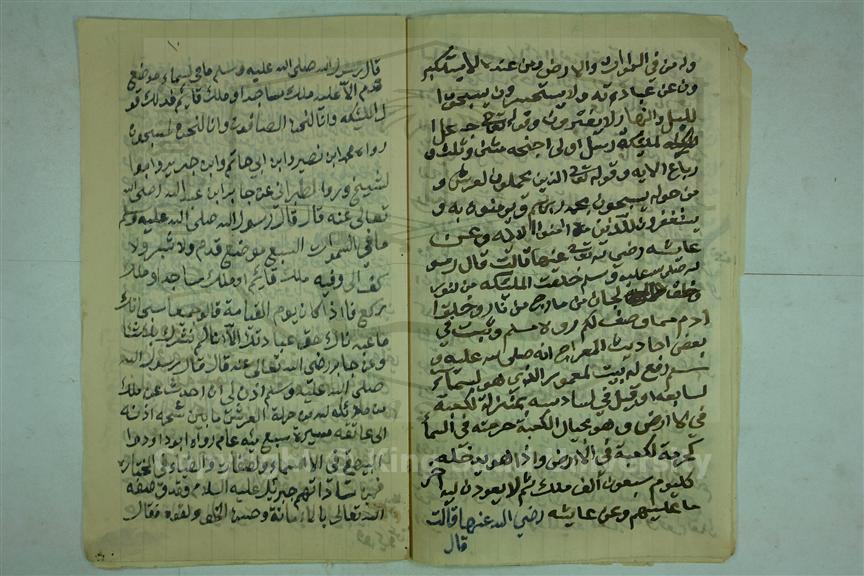 وله من في السموات والارض ومن عنده لا يستكبر
ون عن عبادته ولا يستحسرون يسبحون ا
لليل والنهار لا يفترون وقوله تعالى جاعل ا
لملئكة رسلا اولى اجنحة مثنى وثلث و
رباع الايه وقوله تعالى الذين يحملون العرش و
من حوله يسبحون بحمد ربهم ويومنون به و
يستغفرون للذين امنوا الايه وعن
عايشه رضي الله تعالى عنها قالت قال رسو
الله صلى الله عليه وسلم خلقت الملئكه من نور
وخلق الجان من مارج من نار وخلق ا
ادم مما وصف لكم رواه مسلم وثبت في
بعض احاديث المعراج انه صلى الله عليه و
سلم رفع له بيت المعمور الذي هو لسماء
لسابعه او قيل في لسادسه بمنزلة الكعبة
في الارض وهو بحيال الكعبة حرمته في السما
كحرمة لكعبة في الارض واذا هو يدخله
كل يوم سبعون ألف ملك ثم لا يعودن ليه اخر
ما عليهم وعن عايشه رضي الله عنها قالت
قال
قال رسول الله صلى الله عليه وسلم ما في لسماء موضع
قدم الا عليه ملك ساجد او ملك قايم فذلك قو
ل الملئكه وانا لنحن الصافون وانا لنحن المسبحون
رواه محمد ابن نصير وابن ابي حاتم وابن جرير وابوا
لشيخ وروا لطبراني عن جابر ابن عبد الله رضي الله
تعالى عنه قال قال رسول الله صلى الله عليه وسلم
ما في السموات السبع موضع قدم ولا شبر ولا
كف الا وفيه ملك قايم او ملك ساجد او ملك
راكع فاذا كان يوم القيامة قالو جميعا سبحانك
ما عبدناك حق عبادتك الا انا لم نشرك بك شيئا
وعن جابر رضي الله تعالى عنه قال قال رسول الله
صلى الله عليه وسلم اذن لي ان احدث عن ملك
من ملائكه لله من حملة العرش ما بين شحمه اذنه
الى عاتقه مسيرة سبع مئه عام رواه ابو داود وا
لبيهقي في الاسماء والصفات والضياء في المختاره
فمن ساداتهم جبريل عليه السلام وقد وصفه
الله تعالى بالامانة وحسن الخلق ولقوه فقال